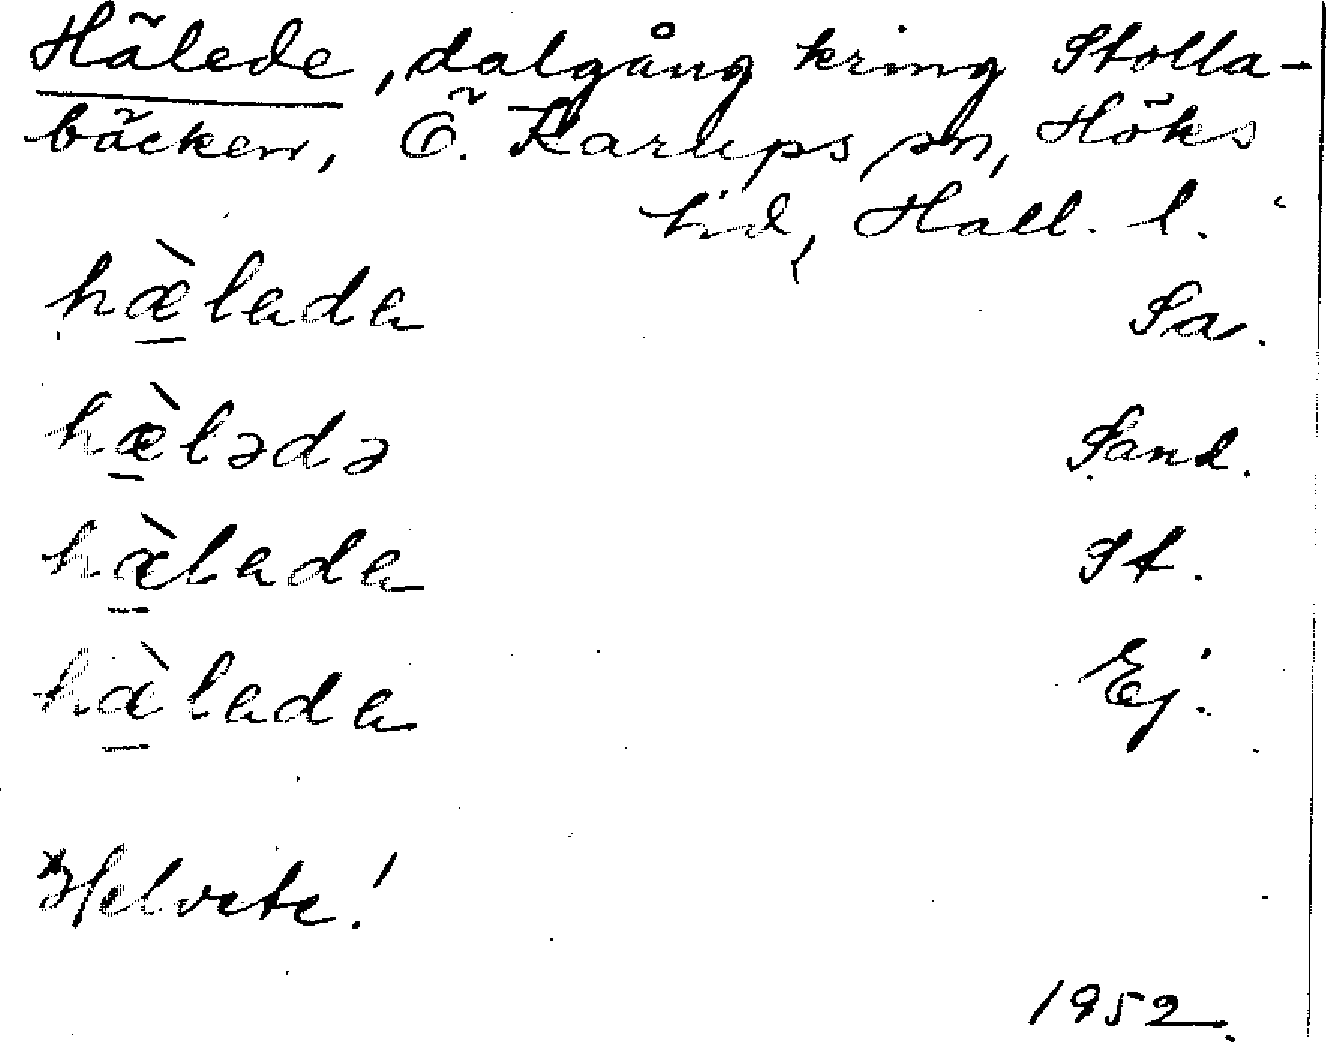 Hälede, dalgång kring Stolla-
bäcken, Ö. Karups sn, Höks
hd, Hall. l.
hæ̀lada Sa.
hæ̀lədə Sand.
hæ̀lada St.
hæ̀lada Ej.
*Helvete!
1952.